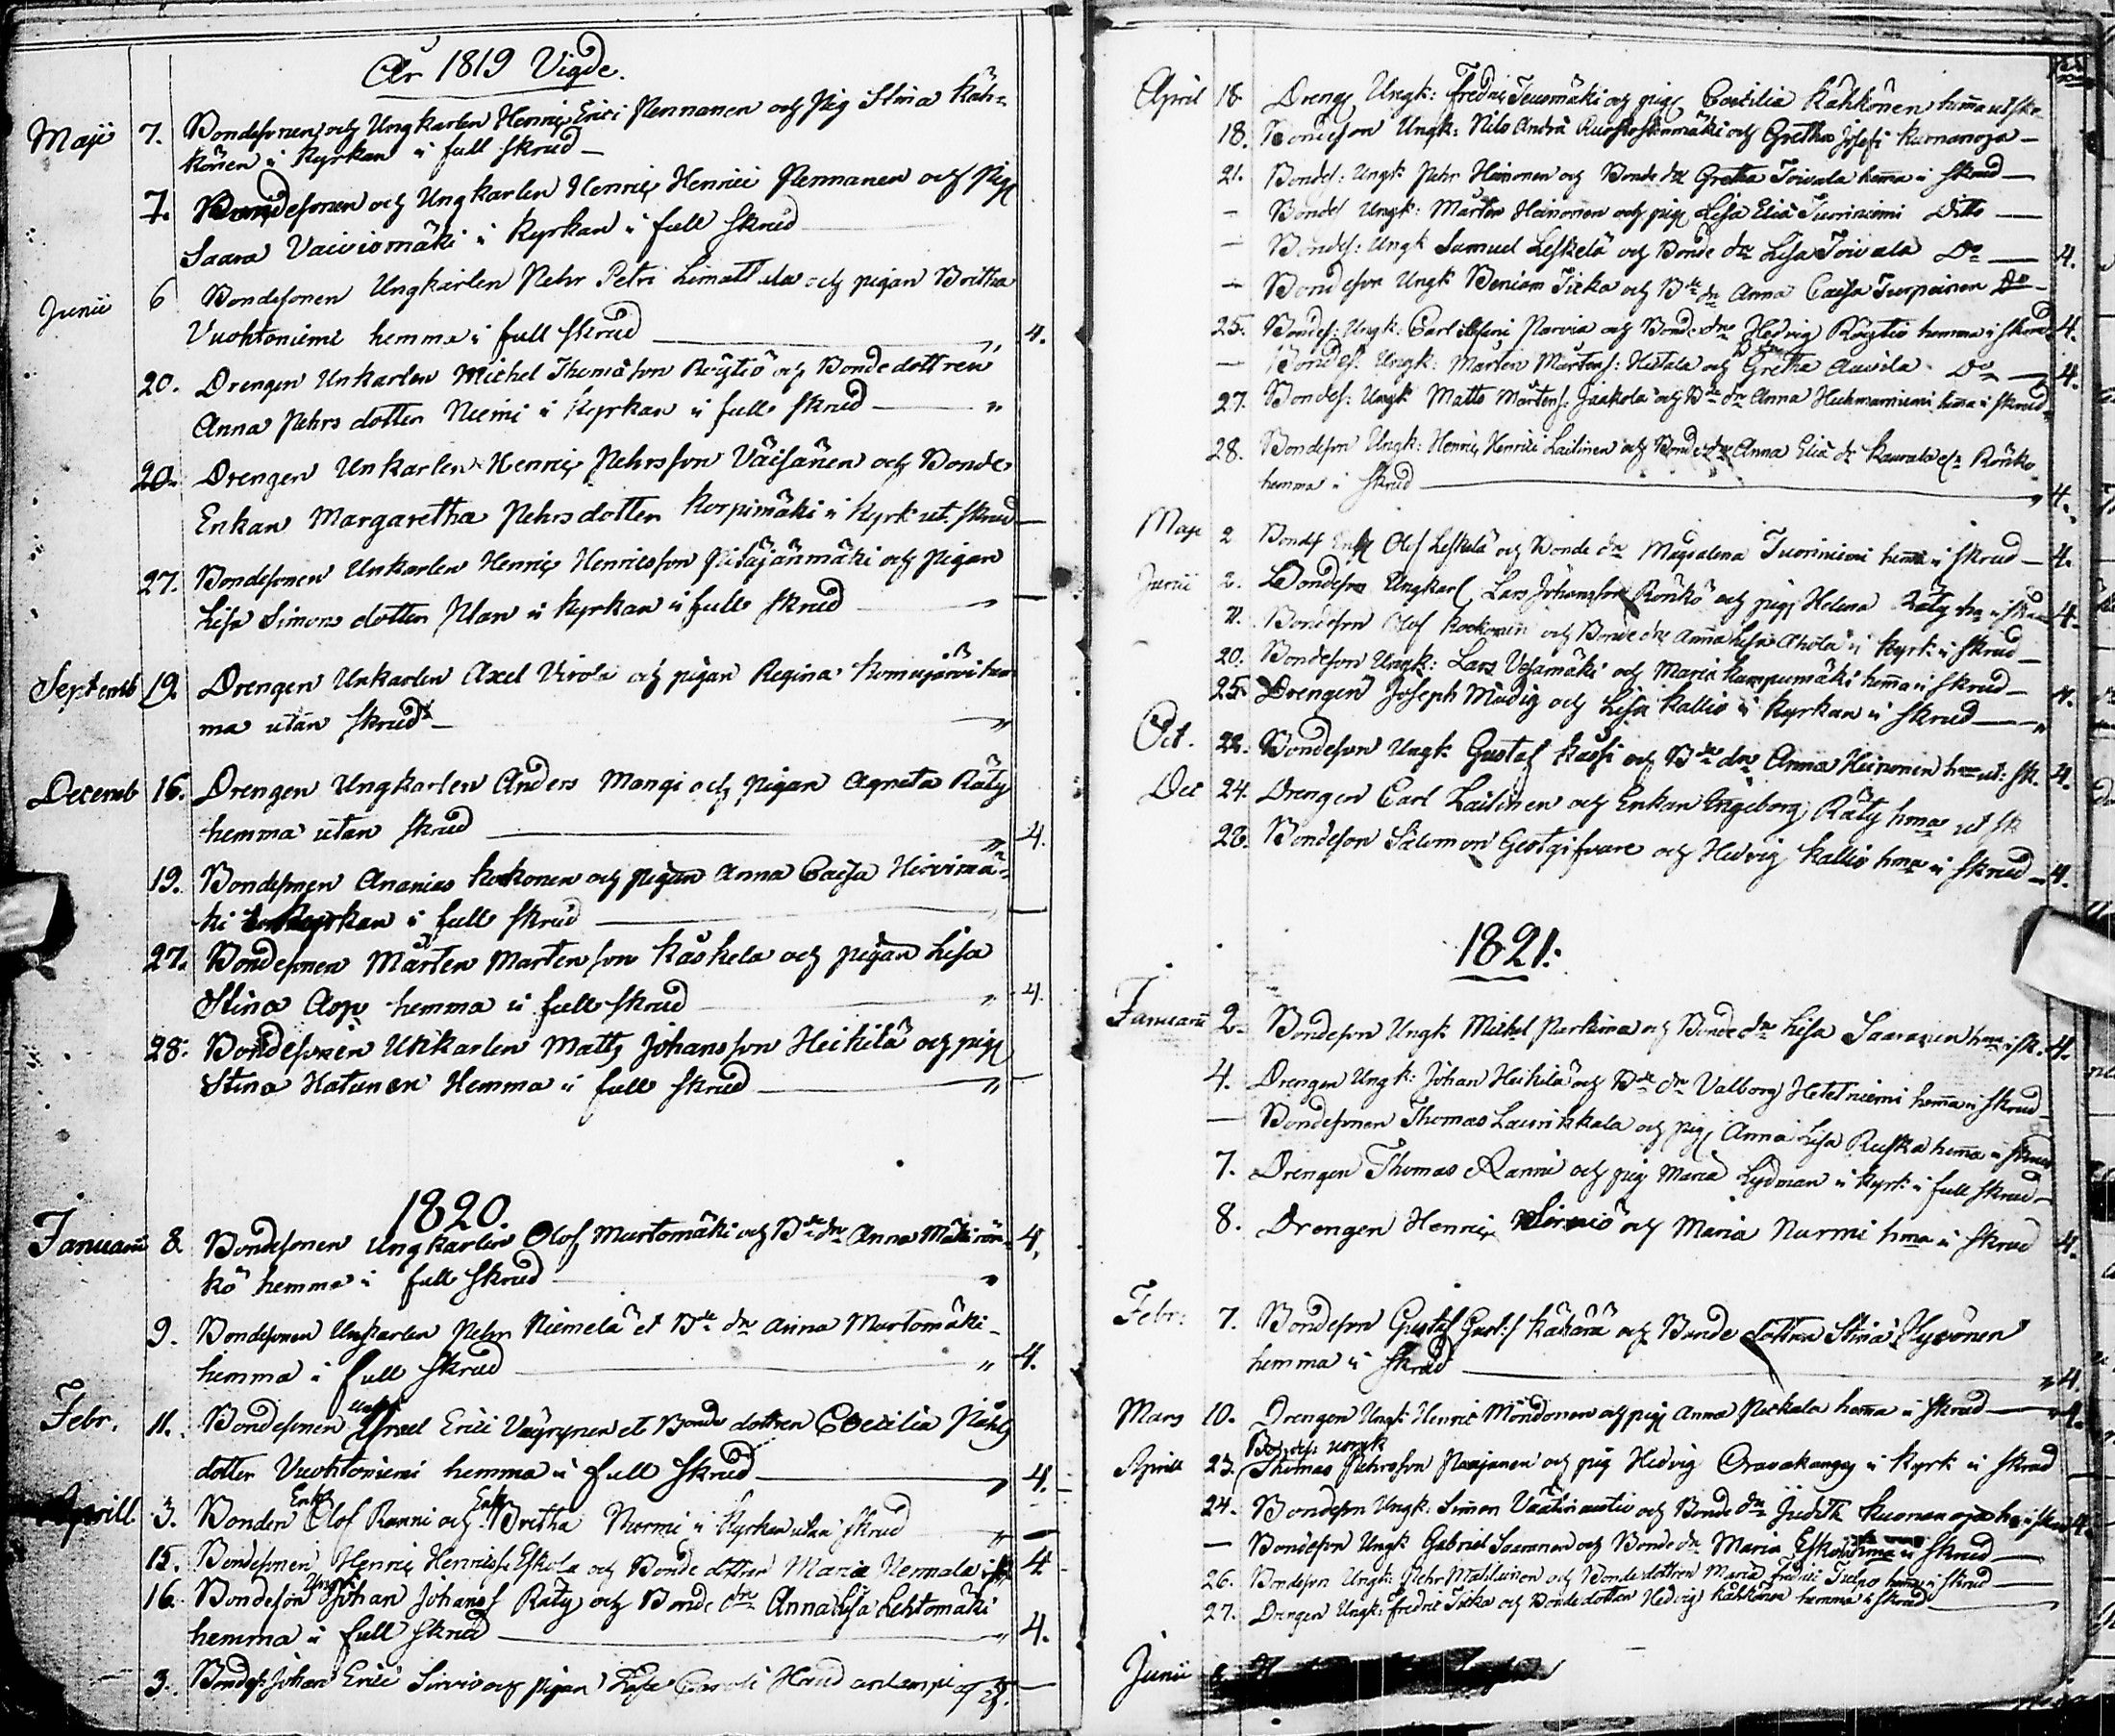 År 1819 Vigde.
Maji 7. Bondesonen och Ungkarlen Henric Erici Pennanen och Pig Stina Käh-
könen i Kyrkan i full skrud —
7. Bondesonen och Ungkarlen Henric Henrici Pennanen och Pig
Saara Vaiviomäki i Kyrkan i full skrud
Junii 6 Bondesonen Ungkarlen Pehr Petri Limattula och pigan Britha
Vuohtoniemi hemma i full skrud — " 4.
20. Drengen Unkarlen Michel Thomasson Röytiö och Bondedottren
Anna Pehrs dotter Niemi i Kyrkan i full skrud — "
20. Drengen Unkarlen Henric Pehrsson Väisänen och Bonde
Enkan Margaretha Pehrsdotter Korpimäki i Kyrk ut. skrud —
27. Bondesonen Unkarlen Henric Henricsson Pitäjänmäki och Pigan
Lisa Simons dotter Plan i Kyrkan i full skrud — "
Septemb 19. Drengen Unkarlen Axel Virola och pigan Regina Komujärvi hem
ma utan skrud — "
Decemb 16. Drengen Ungkarlen Anders Mangi och Pigan Agneta Räty
hemma utan skrud — " 4.
19. Bondesonen Ananias Kokkonen och pigan Anna Caisa Hirvimä-
ki i Kyrkan i full skrud — "
27. Bondesonen Mårten Martensson Käskela och pigan Lisa
Stina Asp hemma i full skrud — " 4.
28. Bondesonen Unkarlen Matts Johansson Heikilä och pig
Stina Hatunen Hemma i full skrud — "
1820.
Januarii 8. Bondesonen Ungkarlen Olof Murtomäki och Bde dr Anna Mäkirön- 4.
kö hemma i full skrud "
9. Bondesonen Unkarlen Pehr Niemelä et Bde dr Anna Murtomäki
hemma i full skrud — " 4.
Febr. 11. Bondesonen Israel Erici Väyrynen et Bonde dottren Coecilia Påhls
dotter Vuohtoniemi hemma i full skrud — " 4.
Aprill. 3. Bonden Enkl Olof Ranni och Enk Britha Nurmi i Kyrkan utan skrud " —
15. Bondesonen Henric Henricss. Eskola och Bonde dottren Maria Nermala 4
16. Bondeson Ungk Johan Johanss Räty och Bonde dr Anna Lisa Lehtomäki
hemma i full skrud — " 4.
3. Bondes: Johan Erici Sirviö och pigan Lisa
April 18 Dreng Ungk: Fredric Teusomäki och pig Coecilia Kähkönen hemma ut skr.
18. Bondeson Ungk: Nils Andrä och Gretha Josefi Kuonanoja —
21. Bondes: Ungk Pehr Heinonen och Bonde dr Gretha Toivala hema i skrud —
— Bondes Ungk: Mårten Heinonen och pig Lisa Elia Tuoriniemi Ditto —
— Bondes: Ungk Samuel Leskelä och Bonde dr Lisa Toivala Do — 4.
— Bondeson Ungk Beniam Ticka och Bde dr Anna Caisa Turpeinen Do —
25. Bondes: Ungk: Carl Parvia och Bonde dr Hedvig Röytiö hemma i skrud 4.
— Bondes: Ungk: Mårten Mårtens: Hietala och Gretha Auvila Do — 4.
27. Bondes: Ungk Matts Mårtens: Jaakola och Bde dr Anna Huhmarniemi hema i skrud
28. Bondeson Ungk: Henric Henrici Lailinen och Bonde dr Anna Elia dr Kaurala Rönkö
hemma i skrud — " 4.
Maji 2. Bonds Enkl Olof Leskelä och Bonde dr Magdalena Tuoriniemi hema i skrud — 4.
Junii 2. Bondeson Ungkarl Lars Johansson Rönkö och pig Helena Räty 4.
11. Bondeson Olof Kockonen och Bonde dr Anna Lisa Ahola i Kyrk: i skrud —
20. Bondeson Ungk: Lars Vesamäki och Maria Kumpumäki hema i skrud — 4.
25. Drengen Joseph Modig och Lisa Kallio i Kyrkan i skrud — "
Oct. 22. Bondeson Ungk Gustaf Kassi och Bde dr Anna Heinonen hma ut: sk. 4.
Dec 24. Drengen Carl Lailinen och Enkan Ingeborg Räty hma ut sk
28. Bondeson Salomon Gestgifvare och Hedvig Kallio hma i skrud — 4.
1821.
Januarii 2. Bondeson Ungk Michel Parkima och Bonde dr Lisa Saaranen hma i sk. 4.
4. Drengen Ungk: Johan Heikilä och Bde dr Valborg Hetetniemi hema i skrud
— Bondesonen Thomas Laurikkala och pig Anna Lisa Ruska hema i skrud
7. Drengen Thomas Ranni och pig Maria Lydman i Kyrk i full skrud —
8. Drengen Henric Sirniö och Maria Nurmi hma i skrud 4.
Febr: 7. Bondeson Gustaf Gust:s Käkärä och Bonde dottren Stina Hyvönen
hemma i skrud — " 4.
Mars 10. Drengen Ungk Henric Möndönen och pig Anna Peckala hema i skrud — 4.
Bondes: ungk
Aprill 23. Thomas Pehrsson Parjanen och pig Hedvig Oravakangas i Kyrk i skrud
24. Bondeson Ungk: Simon Väätäinautio och Bonde dr Judith Kuonanoja 4.
— Bondeson Ungk Gabriel Saaranen och Bonde dr Maria Eskola hma i skrud —
26. Bondeson Ungk: Pehr Matilainen och Bondedottren Maria Fredric Tuelpo hema i skrud —
27. Drengen Ungk: Fredric Ticka och Bondedotter Hedvig Kähkönen hemma i skrud —
Junii 8.